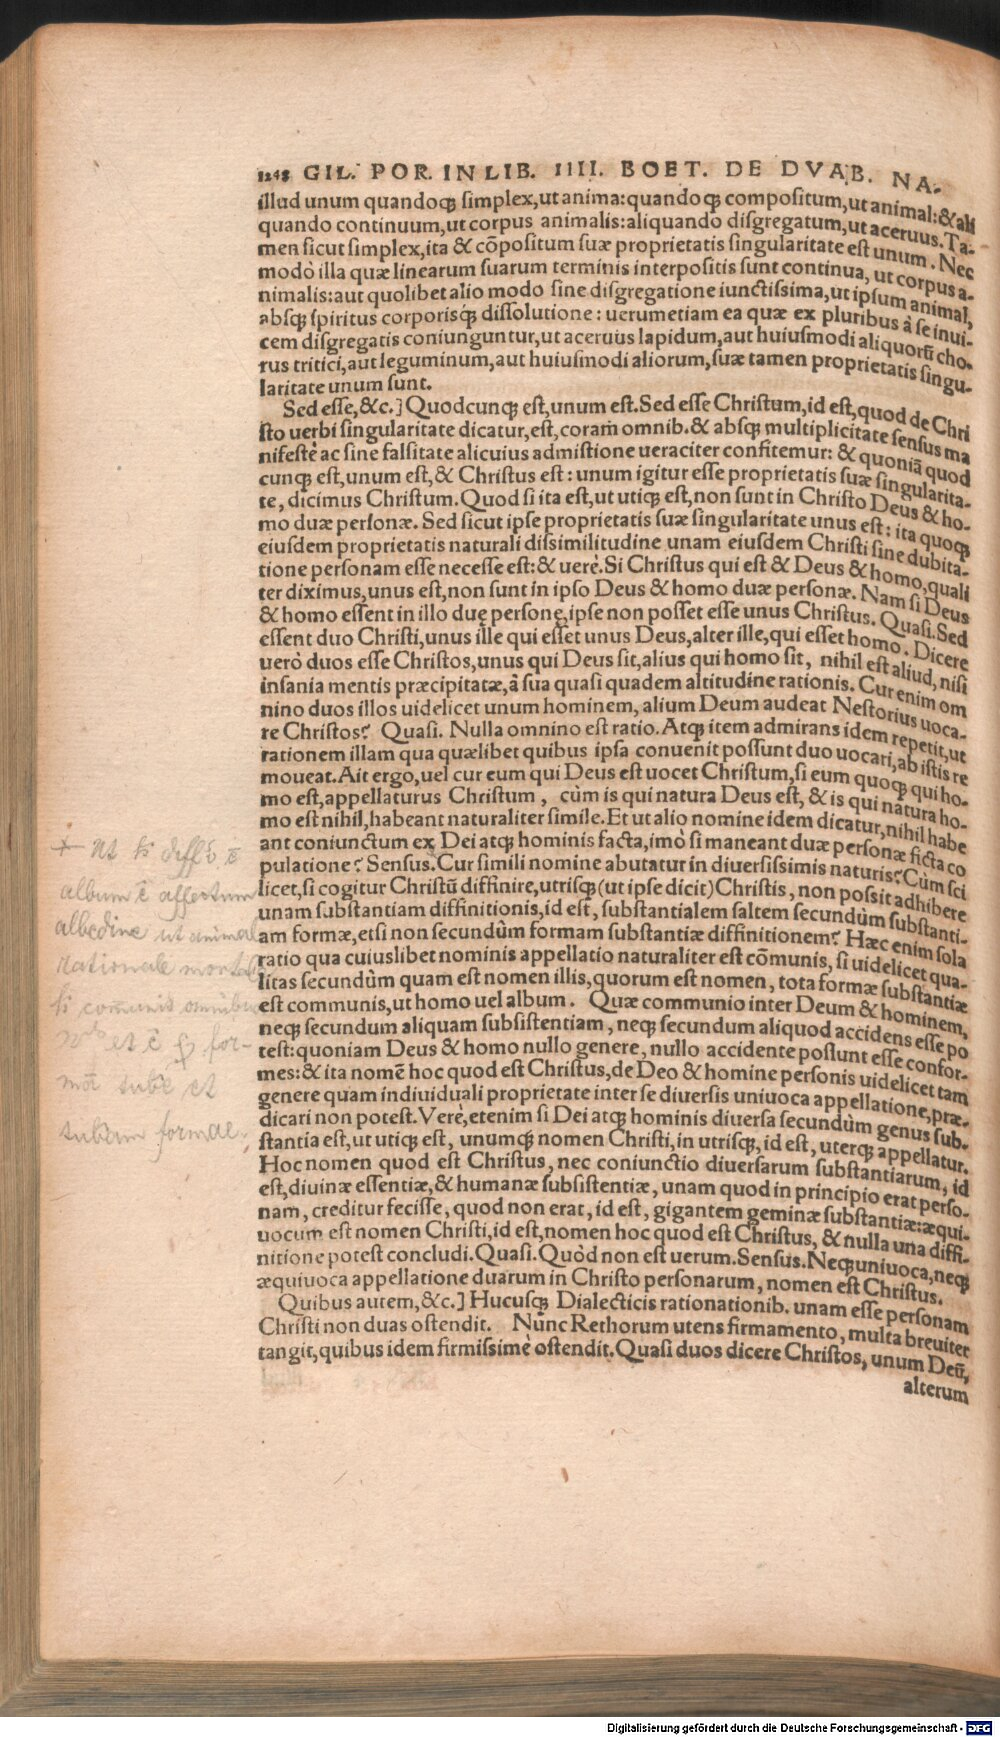 1248 GIL. POR. IN LIB. IIII. BOET. DE DVAB. NA.
illud unum quandoq́; simplex,ut anima:quandoq́; compositum,ut animal:& ali
quando continuum,ut corpus animalis:aliquando disgregatum,ut aceruus. Ta-
men sicut simplex,ita & cōpositum suæ proprietatis singularitate est unum. Nec
modò illa quæ linearum suarum terminis interpositis sunt continua, ut corpus a-
nimalis:aut quolibet alio modo sine disgregatione iunctissima,ut ipsum animal,
absq; spiritus corporisq́; dissolutione: uerumetiam ea quæ ex pluribus à se inui-
cem disgregatis coniunguntur,ut aceruus lapidum,aut huiusmodi aliquorū cho-
rus tritici,aut leguminum,aut huiusmodi aliorum,suæ tamen proprietatis singu-
laritate unum sunt.
Sed esse,&c.] Quodcunq; est,unum est.Sed esse Christum,id est,quod de Chri
sto uerbi singularitate dicatur,est,coram omnib.& absq; multiplicitate sensus ma
nifestè ac sine falsitate alicuius admistione ueraciter confitemur: & quoniā quod
cunq; est,unum est,& Christus est: unum igitur esse proprietatis suæ singularita-
te, dicimus Christum.Quod si ita est,ut utiq; est,non sunt in Christo Deus & ho-
mo duæ personæ. Sed sicut ipse proprietatis suæ singularitate unus est: ita quoq;
eiusdem proprietatis naturali dissimilitudine unam eiusdem Christi sine dubita-
tione personam esse necesse est:& uerè.Si Christus qui est & Deus & homo,quali
ter diximus,unus est,non sunt in ipso Deus & homo duæ personæ. Nam si Deus
& homo essent in illo duę personę,ipse non posset esse unus Christus. Quasi.Sed
essent duo Christi,unus ille qui esset unus Deus,alter ille,qui esset homo. Dicere
uerò duos esse Christos,unus qui Deus sit,alius qui homo sit, nihil est aliud, nisi
insania mentis præcipitatæ,à sua quasi quadem altitudine rationis. Cur enim om
nino duos illos uidelicet unum hominem, alium Deum audeat Nestorius uoca-
re Christos? Quasi. Nulla omnino est ratio. Atq; item admirans idem repetit,ut
rationem illam qua quælibet quibus ipsa conuenit possunt duo uocari,ab istis re
moueat.Ait ergo,uel cur eum qui Deus est uocet Christum,si eum quoq; qui ho-
mo est,appellaturus Christum, cùm is qui natura Deus est, & is qui natura ho-
mo est nihil,habeant naturaliter simile.Et ut alio nomine idem dicatur,nihil habe
ant coniunctum ex Dei atq; hominis facta,imò si maneant duæ personæ ficta co
pulatione? Sensus.Cur simili nomine abutatur in diuersissimis naturis? Cùm sci
licet,si cogitur Christū diffinire,utrisq; (ut ipse dicit) Christis, non possit adhibere
unam substantiam diffinitionis,id est, substantialem saltem secundùm substanti-
am formæ,etsi non secundùm formam substantiæ diffinitionem? Hæc enim sola
ratio qua cuiuslibet nominis appellatio naturaliter est cōmunis, si uidelicet qua-
litas secundùm quam est nomen illis,quorum est nomen, tota formæ substantiæ
est communis,ut homo uel album. Quæ communio inter Deum & hominem,
neq; secundum aliquam subsistentiam, neq; secundum aliquod accidens esse po
test:quoniam Deus & homo nullo genere, nullo accidente possunt esse confor-
mes:& ita nomē hoc quod est Christus,de Deo & homine personis uidelicet tam
genere quam indiuiduali proprietate inter se diuersis uniuoca appellatione,præ-
dicari non potest.Verè,etenim si Dei atq; hominis diuersa secundùm genus sub-
stantia est,ut utiq; est, unumq; nomen Christi,in utrisq;,id est, uterq; appellatur.
Hoc nomen quod est Christus, nec coniunctio diuersarum substantiarum, id
est,diuinæ essentiæ,& humanæ subsistentiæ, unam quod in principio erat perso-
nam, creditur fecisse, quod non erat, id est, gigantem geminæ substantiæ:æqui-
uocum est nomen Christi,id est,nomen hoc quod est Christus, & nulla una diffi-
nitione potest concludi.Quasi.Quòd non est uerum.Sensus.Neq; uniuoca,neq;
æquiuoca appellatione duarum in Christo personarum, nomen est Christus.
Quibus autem,&c.] Hucusq; Dialecticis rationationib. unam esse personam
Christi non duas ostendit. Nunc Rethorum utens firmamento, multa breuiter
tangit,quibus idem firmissimè ostendit.Quasi duos dicere Christos, unum Deū,
alterum
album ē affectum
albedine ut animal
rationale
omnibus
et ē for-
et
formae.
Digitalisierung gefördert durch die Deutsche Forschungsgemeinschaft - DFG